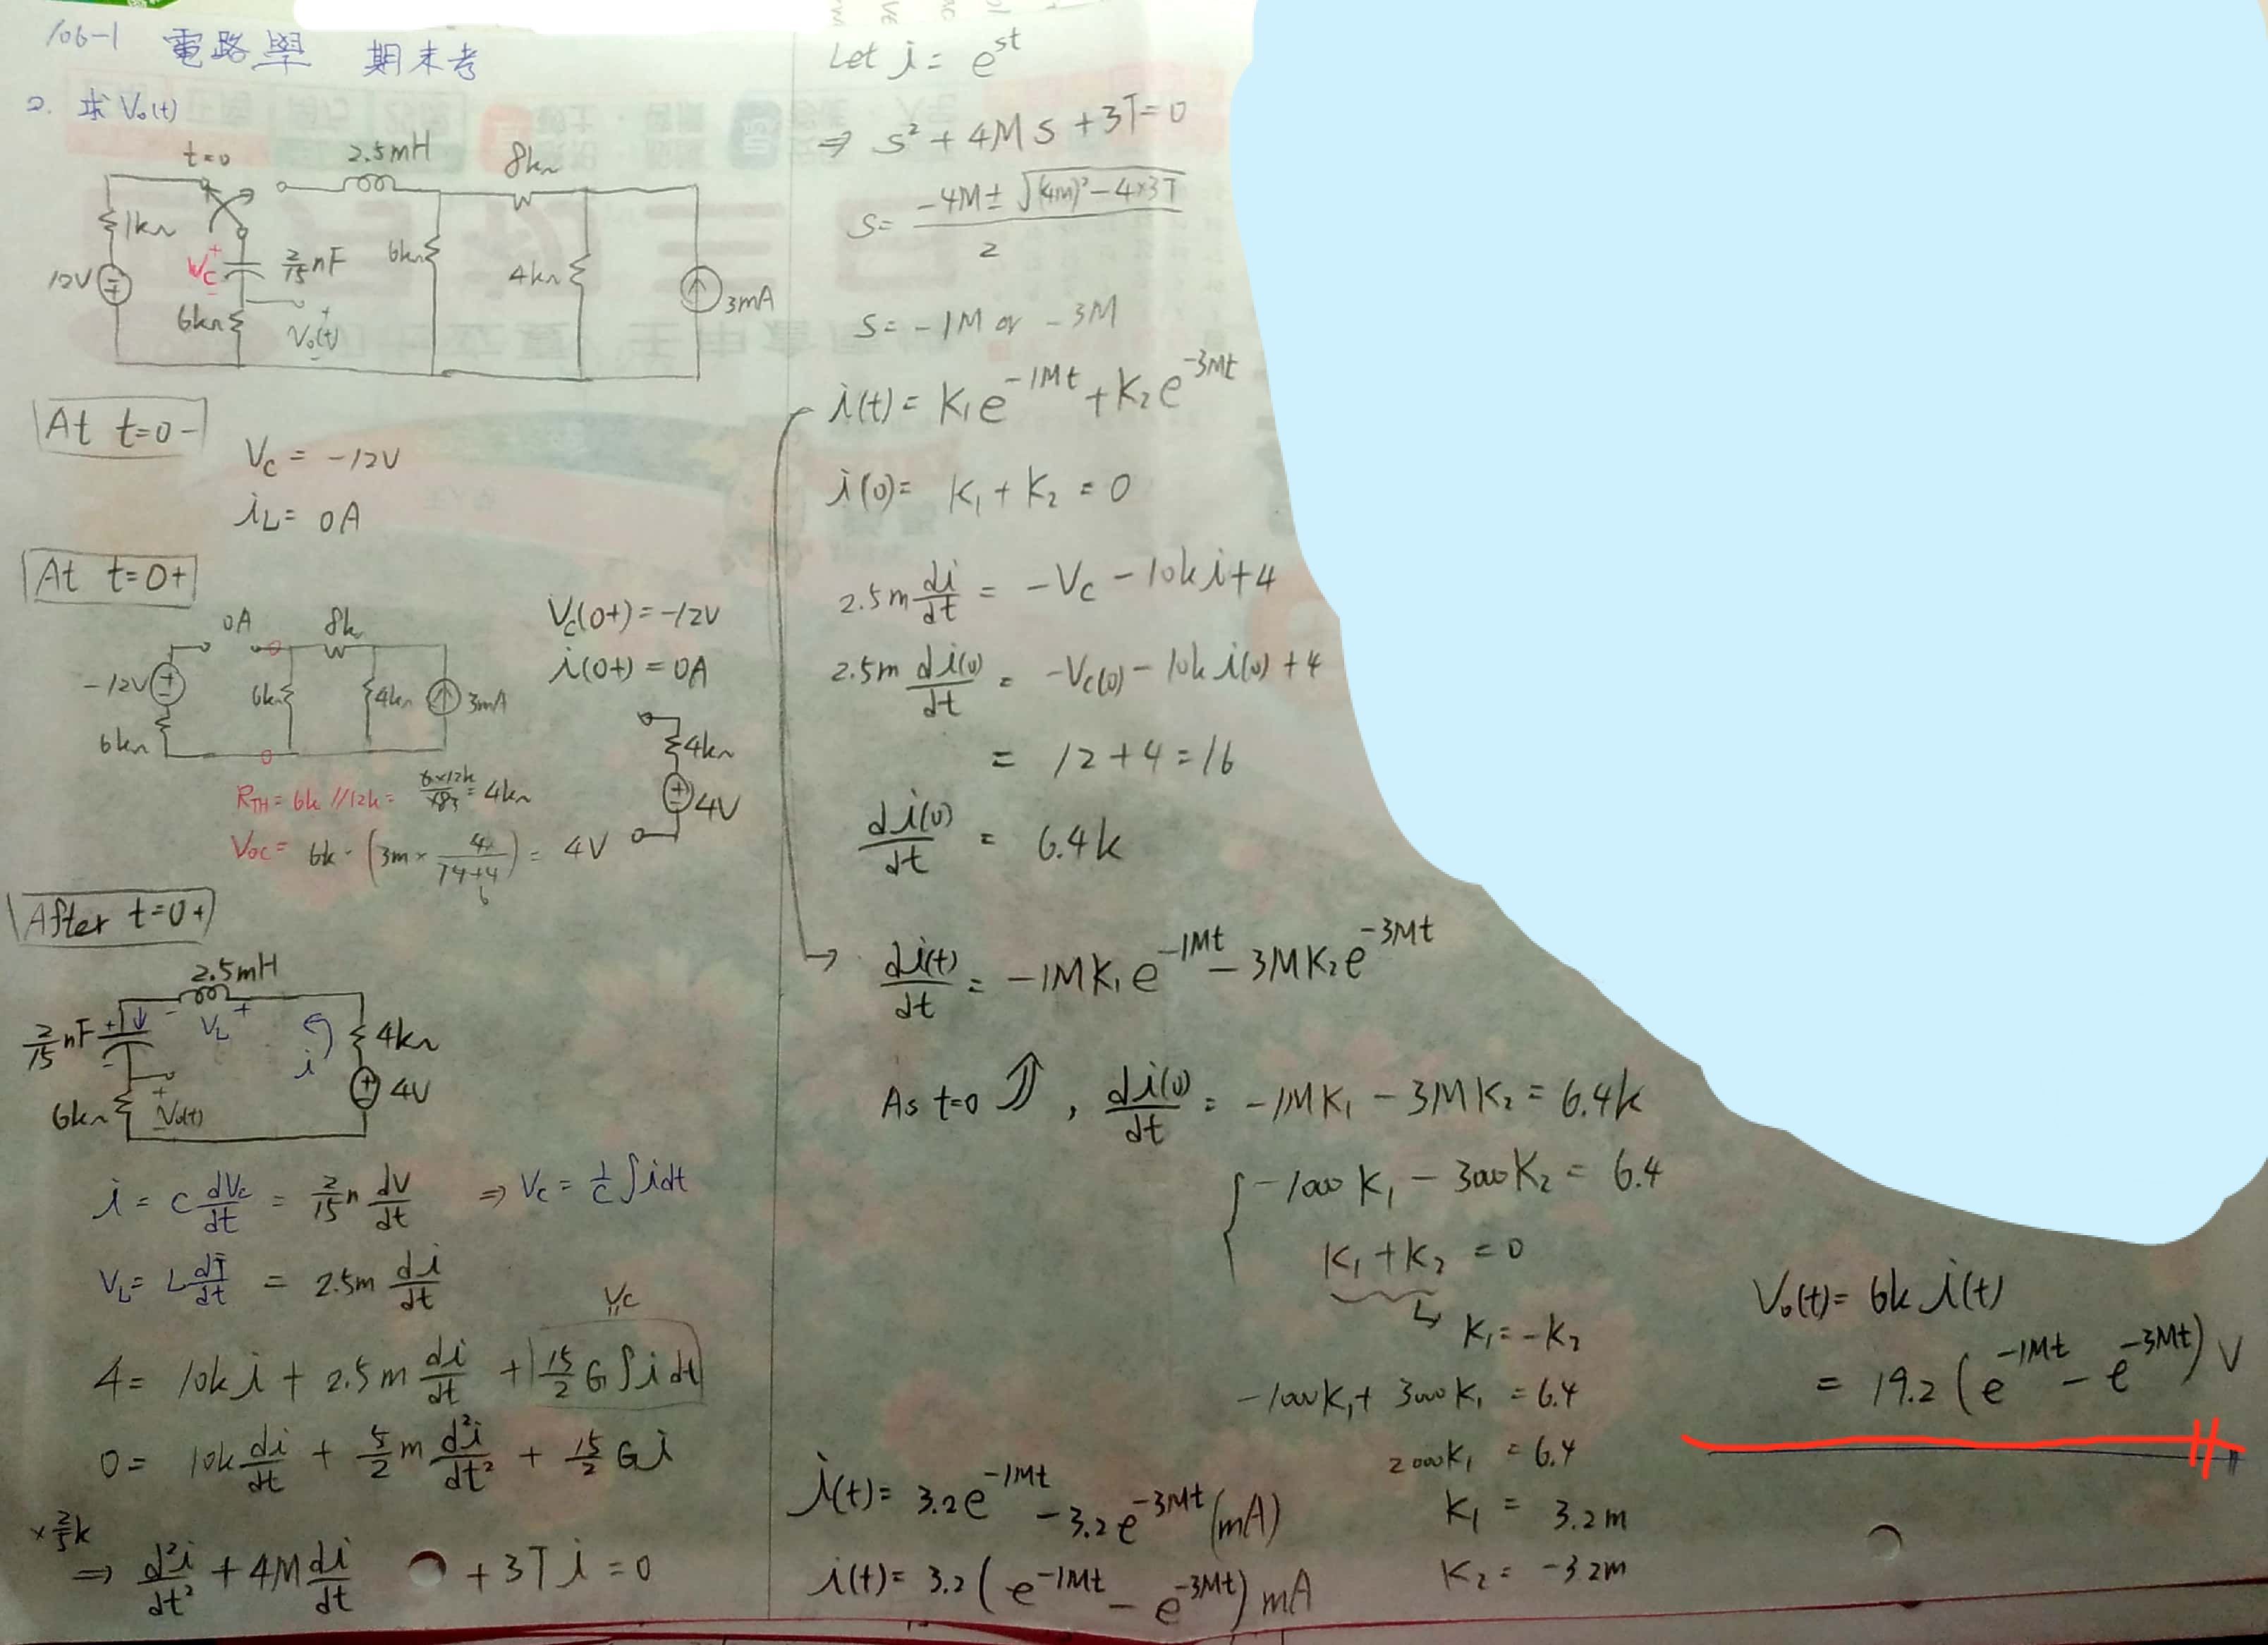 106-1 電路學 期末考
2. 求 V₀(t)
t=0
2.5mH
8kΩ
1kΩ
12V
Vc
+
-
2/15 nF
6kΩ
V₀(t)
+
-
6kΩ
4kΩ
3mA
At t=0-
Vc = -12V
iL = 0A
At t=0+
0A
8k
-12V
6kΩ
6kΩ
4kΩ
3mA
Vc(0+) = -12V
i(0+) = 0A
4kΩ
4V
RTH = 6k // 12k = 6×12k/18 = 4kΩ
After t=0+
2.5mH
- VL +
2/15 nF
+
-
i
4kΩ
4V
6kΩ
+
V₀(t)
-
i = C dVc/dt = 2/15 n dV/dt ⇒ Vc = 1/C ∫ i dt
VL = L dI/dt = 2.5m di/dt
Vc
"
4 = 10k i + 2.5m di/dt + 15/2 G ∫ i dt
0 = 10k di/dt + 5/2 m d²i/dt² + 15/2 G i
⇒ d²i/dt² + 4M di/dt + 3T i = 0
Let i = e^st
⇒ s² + 4M s + 3T = 0
s = (-4M ± √((4M)² - 4×3T)) / 2
s = -1M or -3M
i(t) = K₁e^-1Mt + K₂e^-3Mt
i(0) = K₁ + K₂ = 0
2.5m di/dt = -Vc - 10k i + 4
2.5m di(0)/dt = -Vc(0) - 10k i(0) + 4
= 12 + 4 = 16
di(0)/dt = 6.4k
→ di(t)/dt = -1MK₁e^-1Mt - 3MK₂e^-3Mt
As t=0 ⇑, di(0)/dt = -1MK₁ - 3MK₂ = 6.4k
{ -1000K₁ - 3000K₂ = 6.4
K₁ + K₂ = 0
↳ K₁ = -K₂
-1000K₁ + 3000K₁ = 6.4
2000K₁ = 6.4
K₁ = 3.2m
K₂ = -3.2m
i(t) = 3.2e^-1Mt - 3.2e^-3Mt (mA)
i(t) = 3.2(e^-1Mt - e^-3Mt) mA
V₀(t) = 6k i(t)
= 19.2(e^-1Mt - e^-3Mt) V